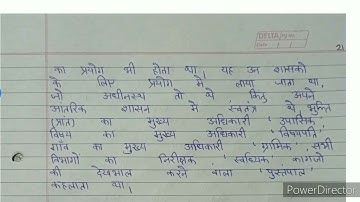 DELTA
Date
21
का प्रयोग भी होता था, यह उन शासकों
के लिए प्रयोग में लाया जाता था,
जो अधीनस्थ तो थे किंतु अपने
आंतरिक शासन में स्वतंत्र थे भुक्ति
(प्रांत) का मुख्य अधिकारी 'उपरिक'
विषय का मुख्य अधिकारी 'विषयपति',
गाँव का मुख्य अधिकारी 'ग्रामिक', सभी
विभागों का निरीक्षक, 'सर्वाध्यक्ष' कागजों
की देखभाल करने वाला 'पुस्तपाल'
कहलाता था।
PowerDirector